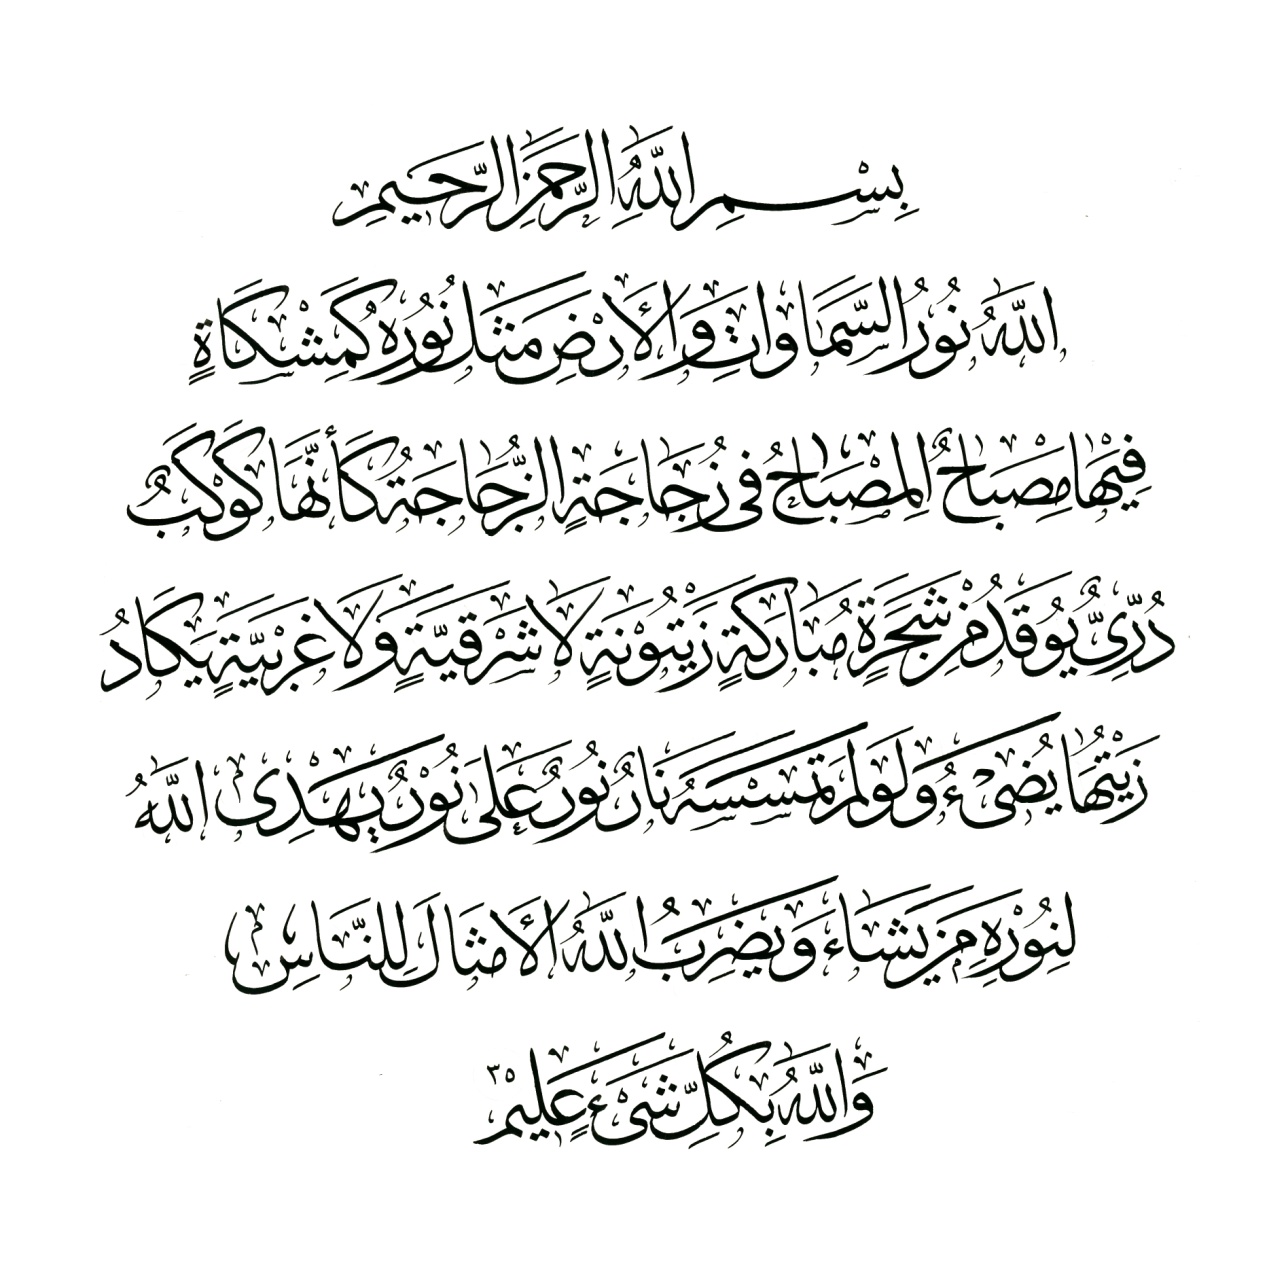 بِسْمِ اللَّهِ الرَّحْمَنِ الرَّحِيمِ
اللَّهُ نُورُ السَّمَاوَاتِ وَالْأَرْضِ مَثَلُ نُورِهِ كَمِشْكَاةٍ
فِيهَا مِصْبَاحٌ الْمِصْبَاحُ فِي زُجَاجَةٍ الزُّجَاجَةُ كَأَنَّهَا كَوْكَبٌ
دُرِّيٌّ يُوقَدُ مِنْ شَجَرَةٍ مُبَارَكَةٍ زَيْتُونَةٍ لَا شَرْقِيَّةٍ وَلَا غَرْبِيَّةٍ يَكَادُ
زَيْتُهَا يُضِيءُ وَلَوْ لَمْ تَمْسَسْهُ نَارٌ نُورٌ عَلَى نُورٍ يَهْدِي اللَّهُ
لِنُورِهِ مَنْ يَشَاءُ وَيَضْرِبُ اللَّهُ الْأَمْثَالَ لِلنَّاسِ
وَاللَّهُ بِكُلِّ شَيْءٍ عَلِيمٌ ٣٥